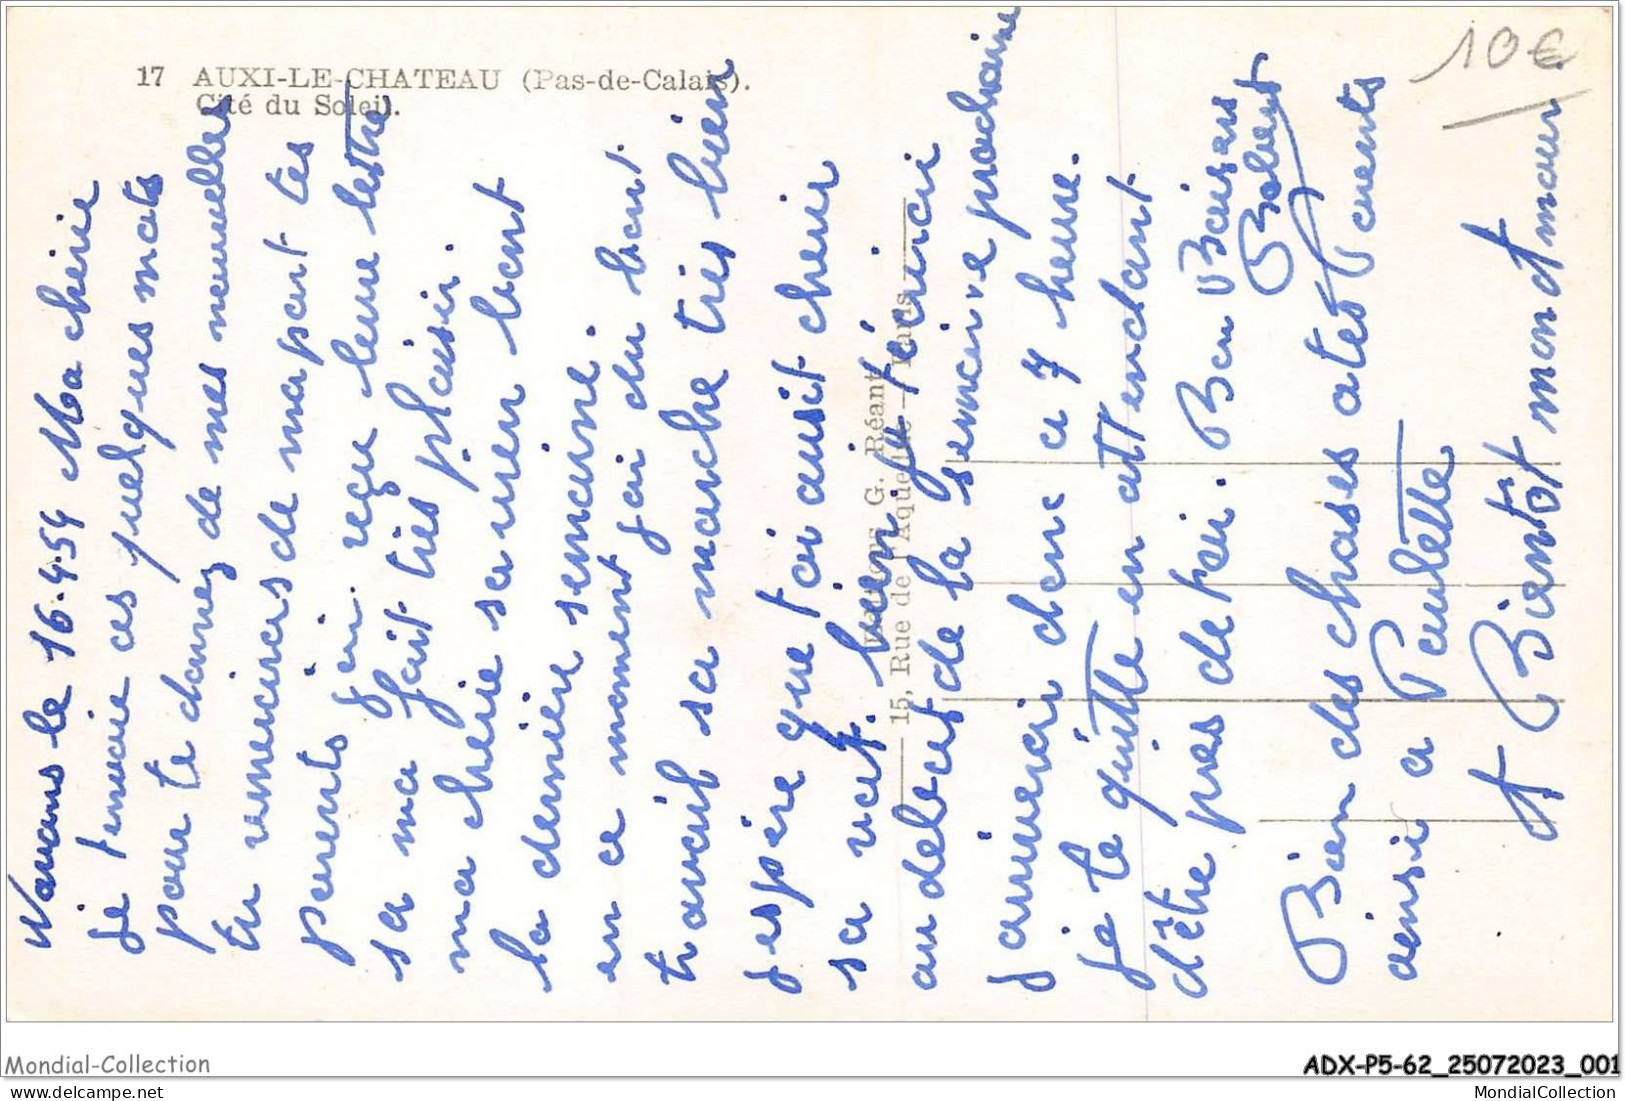 17 AUXI-LE-CHATEAU (Pas-de-Calais).
Cité du Soleil.
10€
le 16.4.59 Ma chérie
je tenvoie ces quelques mots
pour te donnez de mes nouvelles
tu remercieras de ma part tes
parents jai reçu leure lestre
sa ma fait tres plaisir.
ma cherie sa vien bant
la derniere semaine.
en ce moment jai du
travail sa marche tres bien
jespère que toi ausit cherir
sa vat. bien. je técrirai
au debeut de la semaine prochaine
jarriverai donc a 7 heure.
je te quitte en attendant
d'être pres de toi. Bon Baisers
Robert
Bien des choses a tes Parents
ainsi a Paulette
A Bientot mon Amour.
Editions G. Réant
15, Rue de l'Aqueduc - Paris
Mondial-Collection
ADX-P5-62_25072023_001
delcampe.net
MondialCollection